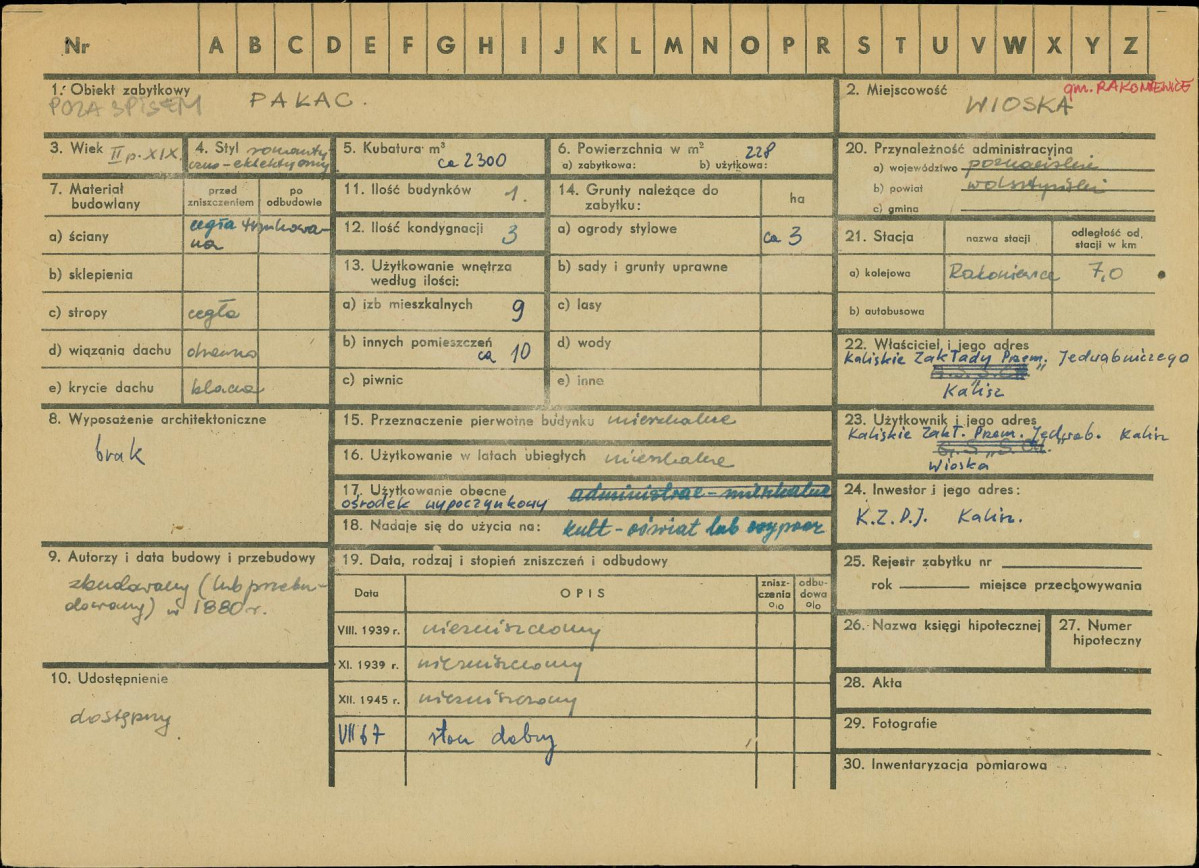 Nr A B C D E F G H I J K L M N O P R S T U V W X Y Z
1. Obiekt zabytkowy
POZA SPISEM
PAŁAC.
2. Miejscowość
gm. RAKONIEWICE
WIOSKA
3. Wiek II p. XIX.
4. Styl romanty
czno-eklektyczny
5. Kubatura m³
ca 2300
6. Powierzchnia w m² 228
a) zabytkowa: b) użytkowa:
7. Materiał
budowlany
przed
zniszczeniem
po
odbudowie
a) ściany cegła tynkowa-
na
b) sklepienia
c) stropy cegła
d) wiązania dachu drewno
e) krycie dachu blacha
8. Wyposażenie architektoniczne
brak
9. Autorzy i data budowy i przebudowy
zbudowany (lub przebu-
dowany) w 1880 r.
10. Udostępnienie
dostępny
11. Ilość budynków 1.
12. Ilość kondygnacji 3
13. Użytkowanie wnętrza
według ilości:
a) izb mieszkalnych 9
b) innych pomieszczeń
ca 10
c) piwnic
14. Grunty należące do
zabytku:
ha
a) ogrody stylowe ca 3
b) sady i grunty uprawne
c) lasy
d) wody
e) inne
15. Przeznaczenie pierwotne budynku mieszkalne
16. Użytkowanie w latach ubiegłych mieszkalne
17. Użytkowanie obecne administrac-mieszkalne
ośrodek wypoczynkowy
18. Nadaje się do użycia na: kult-oświat lub wypocz
19. Data, rodzaj i stopień zniszczeń i odbudowy
Data OPIS
znisz-
czenia
o/o
odbu-
dowa
o/o
VIII. 1939 r. niezniszczony
XI. 1939 r. niezniszczony
XII. 1945 r. niezniszczony
VII 67 stan dobry
20. Przynależność administracyjna
a) województwo poznańskie
b) powiat wolsztyński
c) gmina
21. Stacja
nazwa stacji
odległość od
stacji w km
a) kolejowa Rakoniewice 7,0
b) autobusowa
22. Właściciel i jego adres
Kaliskie Zakłady Przem. Jedwabniczego
Kalisz
23. Użytkownik i jego adres
Kaliskie Zakł. Przem. Jedwab. Kalisz
Wioska
24. Inwestor i jego adres:
K.Z.P.J. Kalisz.
25. Rejestr zabytku nr
rok miejsce przechowywania
26. Nazwa księgi hipotecznej
27. Numer
hipoteczny
28. Akta
29. Fotografie
30. Inwentaryzacja pomiarowa